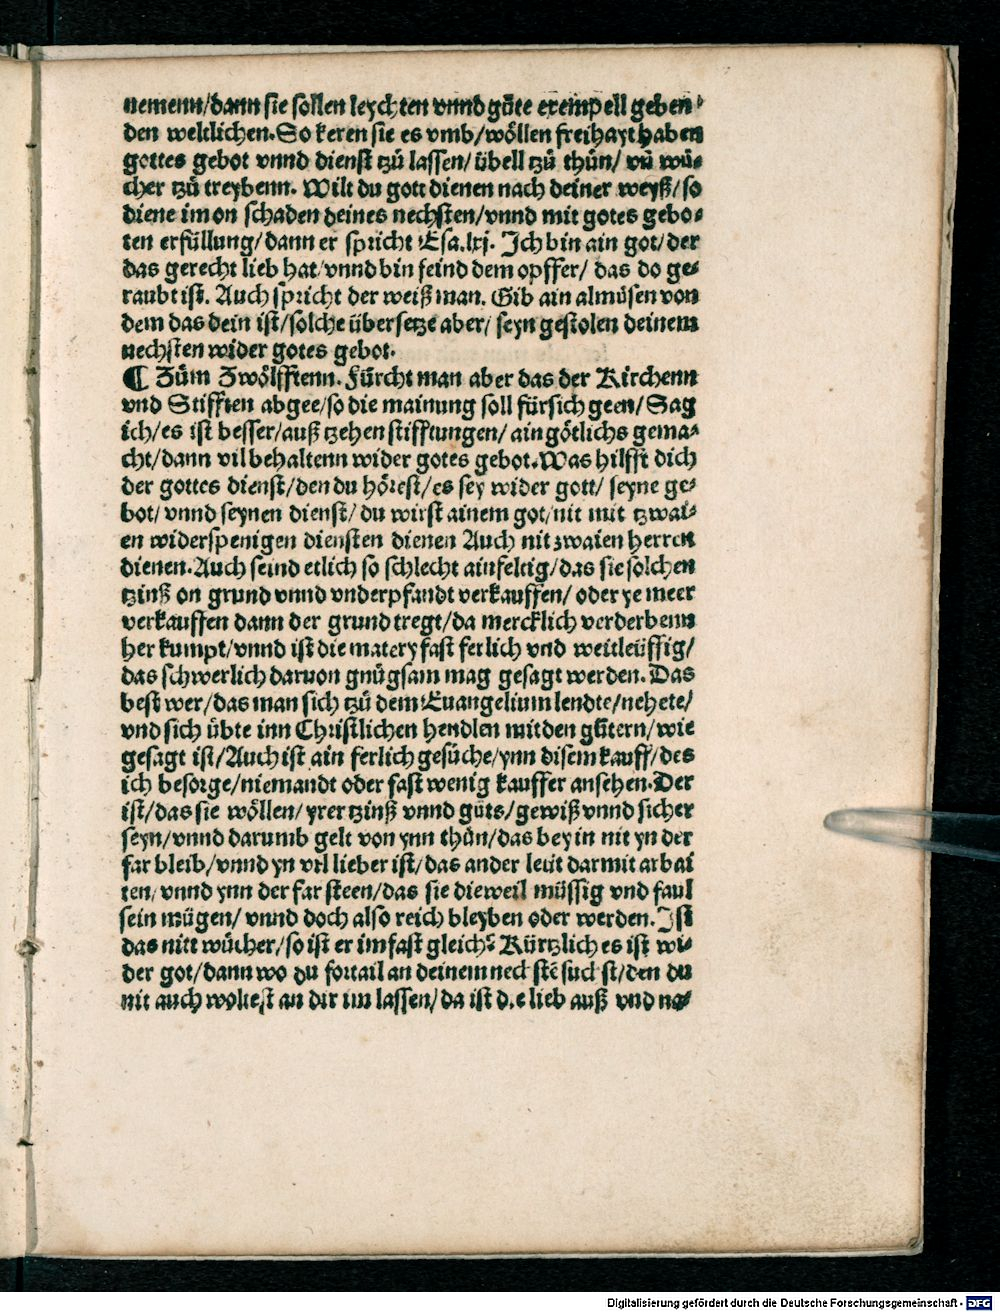 nemenn/dann sie sollen leychten vnnd gůte exempell geben
den weltlichen. So keren sie es vmb/wöllen freihayt haben
gottes gebot vnnd dienst tzů lassen/ übell tzů thůn/ vñ wů-
cher tzů treybenn. Wilt du gott dienen nach deiner weyß/so
diene im on schaden deines nechsten/vnnd mit gotes gebo-
ten erfüllung/dann er spricht Esa.lxj. Ich bin ain got/der
das gerecht lieb hat/vnnd bin feind dem opffer/ das do ge-
raubt ist. Auch spricht der weiß man. Gib ain almůsen von
dem das dein ist/solche übersetze aber/ seyn gestolen deinem
nechsten wider gotes gebot.
¶ Zům Zwölfftenn. Fürcht man aber das der Kirchenn
vnd Stifften abgee/so die mainung soll fürsich geen/Sag
ich/es ist besser/auß tzehen stifftungen/ain götlichs gema-
cht/dann vil behaltenn wider gotes gebot. Was hilfft dich
der gottes dienst/den du hörest/es sey wider gott/ seyne ge-
bot/vnnd seynen dienst/ du wirst ainem got/nit mit tzwai-
en widerspenigen diensten dienen Auch nit zwaien herren
dienen. Auch seind etlich so schlecht ainfeltig/das sie solchen
tzinß on grund vnnd vnderpfandt verkauffen/ oder ye meer
verkauffen dann der grund tregt/da mercklich verderbenn
her kumpt/vnnd ist die matery fast ferlich vnd weitleüffig/
das schwerlich daruon gnůgsam mag gesagt werden. Das
best wer/das man sich tzů dem Euangelium lendte/nehete/
vnd sich übte inn Christlichen hendlen mit den gůtern/wie
gesagt ist/Auch ist ain ferlich gesůche/ynn disem kauff/des
ich besorge/niemandt oder fast wenig kauffer ansehen. Der
ist/das sie wöllen/yrer tzinß vnnd gůts/gewiß vnnd sicher
seyn/vnnd darumb gelt von ynn thůn/das bey in nit yn der
far bleib/vnnd yn vil lieber ist/das ander leüt darmit arbai
ten/vnnd ynn der far steen/das sie dieweil müssig vnd faul
sein mügen/vnnd doch also reich bleyben oder werden. Ist
das nitt wůcher/so ist er im fast gleich? Kürtzlich es ist wi-
der got/dann wo du fortail an deinem nechstē suchst/den du
nit auch woltest an dir im lassen/da ist die lieb auß vnd na-
Digitalisierung gefördert durch die Deutsche Forschungsgemeinschaft - DFG